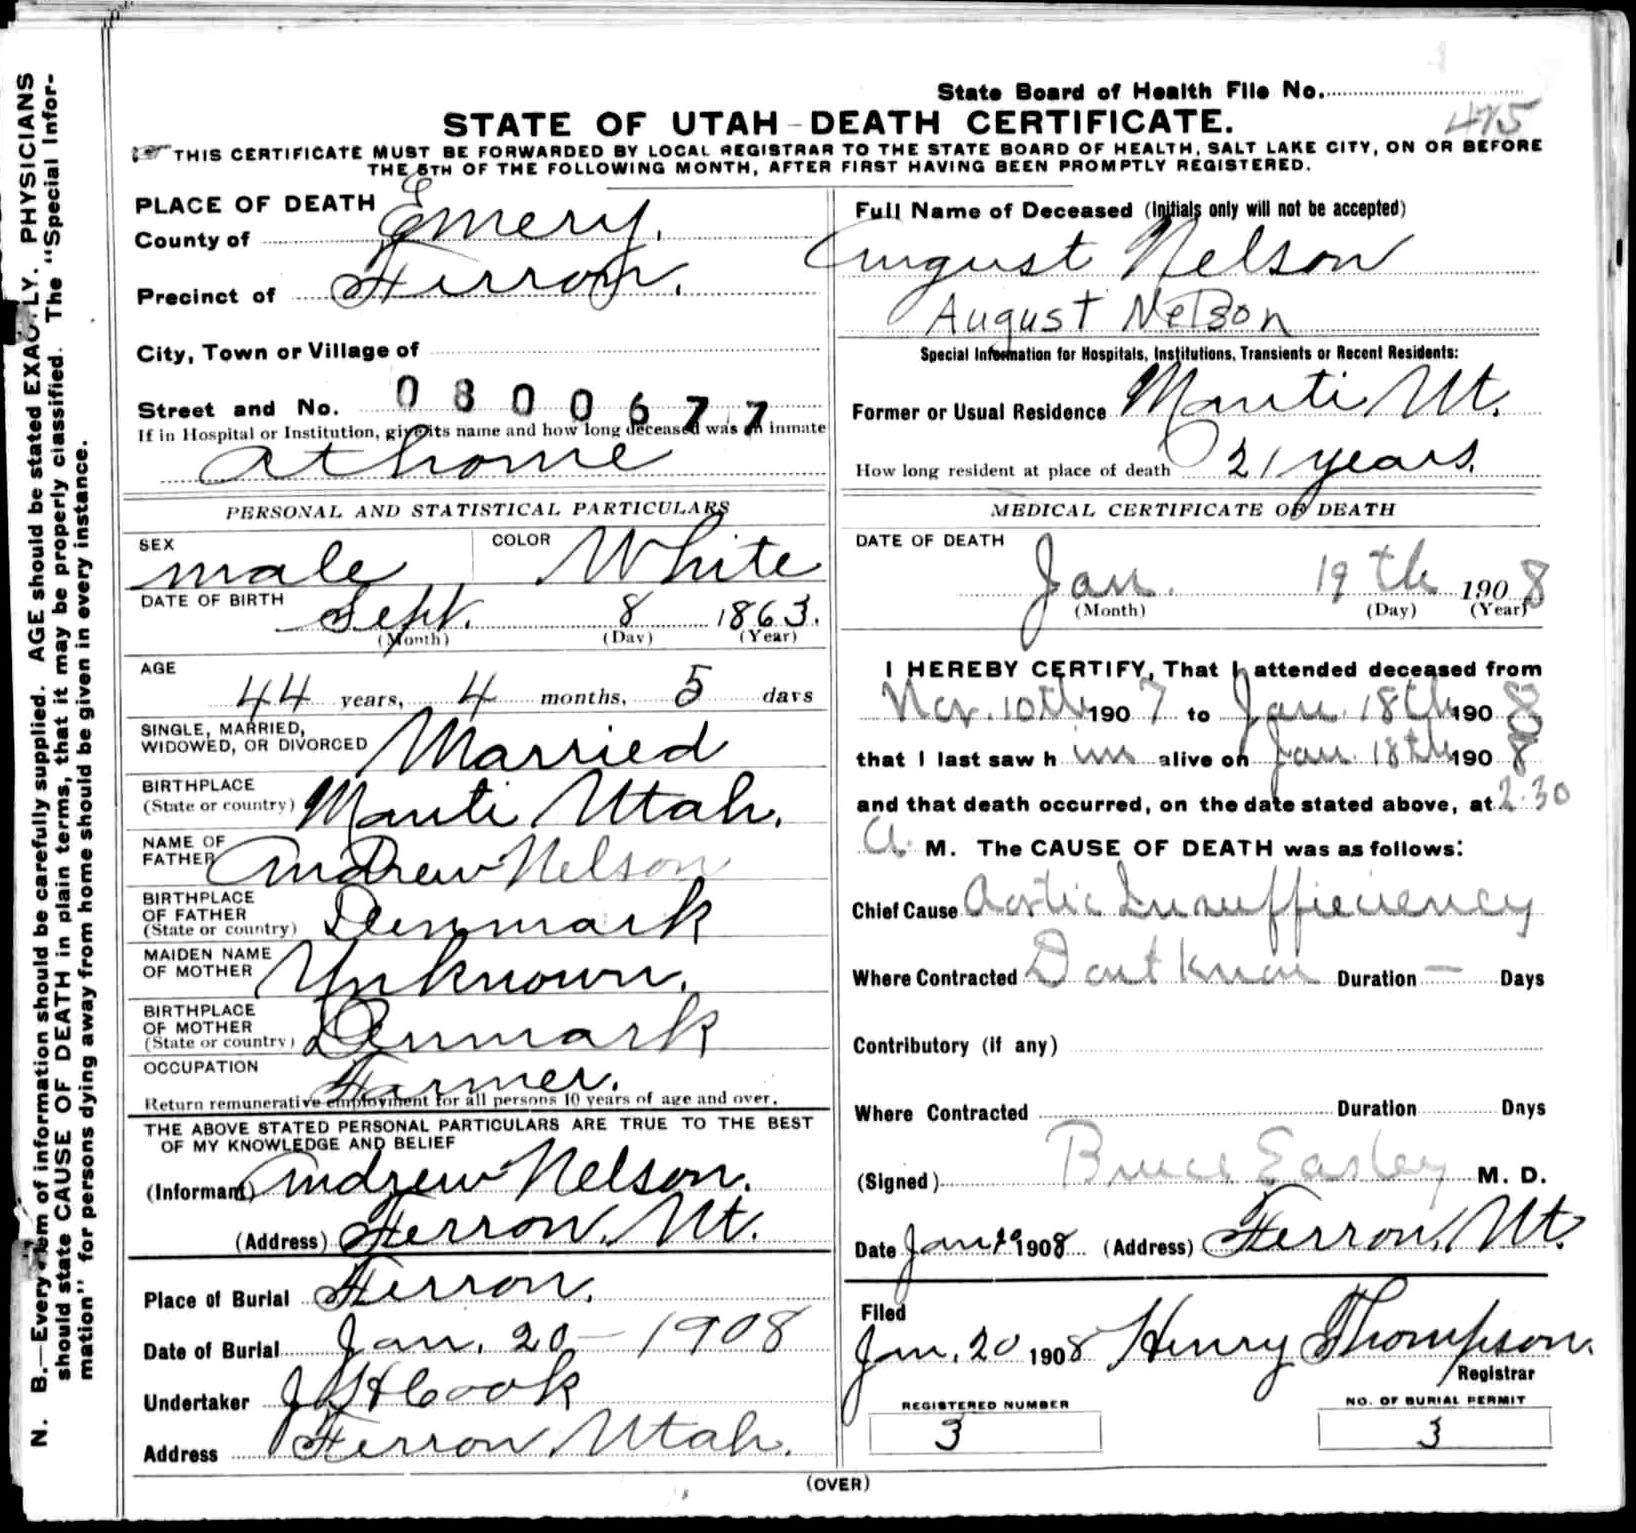 N. B.—Every item of information should be carefully supplied. AGE should be stated EXACTLY. PHYSICIANS
should state CAUSE OF DEATH in plain terms, that it may be properly classified. The "Special Infor-
mation" for persons dying away from home should be given in every instance.
State Board of Health File No.
475
STATE OF UTAH-DEATH CERTIFICATE.
THIS CERTIFICATE MUST BE FORWARDED BY LOCAL REGISTRAR TO THE STATE BOARD OF HEALTH, SALT LAKE CITY, ON OR BEFORE
THE 5TH OF THE FOLLOWING MONTH, AFTER FIRST HAVING BEEN PROMPTLY REGISTERED.
PLACE OF DEATH
County of Emery.
Precinct of Ferron.
City, Town or Village of
Street and No. 0800677
If in Hospital or Institution, give its name and how long deceased was an inmate
at home
PERSONAL AND STATISTICAL PARTICULARS
SEX male COLOR White
DATE OF BIRTH Sept. 8 1863.
(Month) (Day) (Year)
AGE
44 years, 4 months, 5 days
SINGLE, MARRIED,
WIDOWED, OR DIVORCED Married
BIRTHPLACE
(State or country) Manti Utah.
NAME OF
FATHER Andrew Nelson
BIRTHPLACE
OF FATHER
(State or country) Denmark
MAIDEN NAME
OF MOTHER Unknown.
BIRTHPLACE
OF MOTHER
(State or country) Denmark
OCCUPATION
Farmer.
Return remunerative employment for all persons 10 years of age and over.
THE ABOVE STATED PERSONAL PARTICULARS ARE TRUE TO THE BEST
OF MY KNOWLEDGE AND BELIEF
(Informant) Andrew Nelson.
(Address) Ferron, Ut.
Place of Burial Ferron.
Date of Burial Jan. 20 - 1908
Undertaker J H Cook
Address Ferron Utah.
Full Name of Deceased (Initials only will not be accepted)
August Nelson
August Nelson
Special Information for Hospitals, Institutions, Transients or Recent Residents:
Former or Usual Residence Manti Ut.
How long resident at place of death 21 years.
MEDICAL CERTIFICATE OF DEATH
DATE OF DEATH
Jan. 19th 1908
(Month) (Day) (Year)
I HEREBY CERTIFY, That I attended deceased from
Nov. 10th 1907 to Jan. 18th 1908
that I last saw him alive on Jan. 18th 1908
and that death occurred, on the date stated above, at 2.30
a. M. The CAUSE OF DEATH was as follows:
Chief Cause Aortic Insufficiency
Where Contracted Dont know Duration — Days
Contributory (if any)
Where Contracted Duration Days
(Signed) Bruce Easley M. D.
Date Jan 19 1908 (Address) Ferron, Ut.
Filed
Jan. 20 1908 Henry Thompson.
Registrar
REGISTERED NUMBER
3
NO. OF BURIAL PERMIT
3
(OVER)